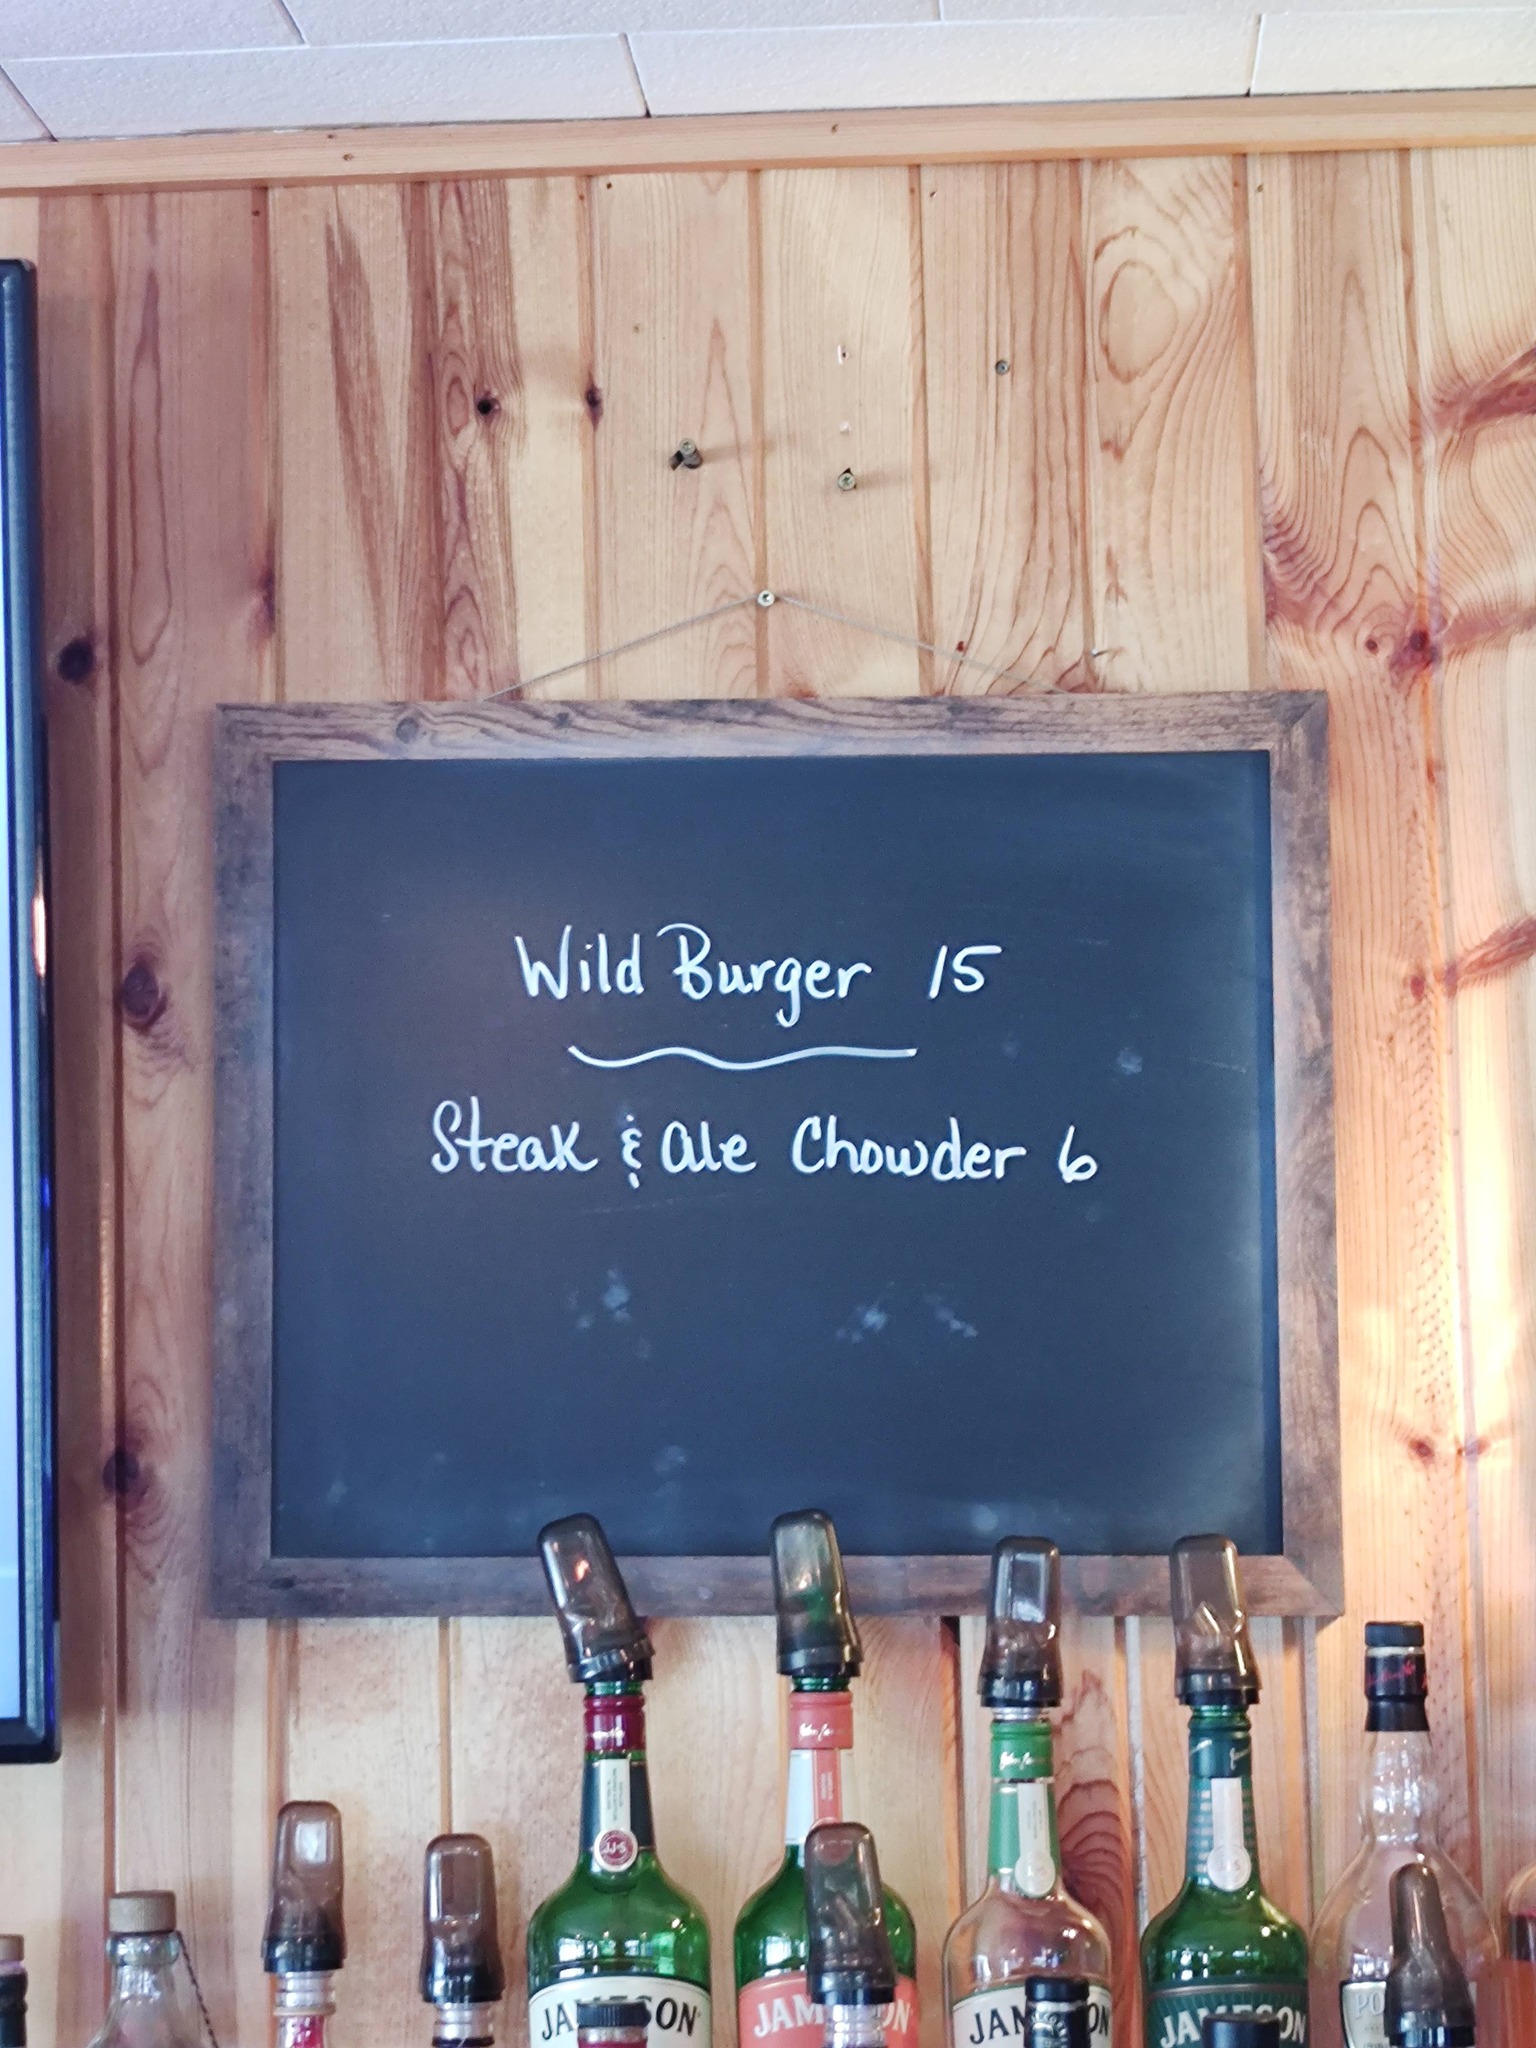 Wild Burger 15
Steak & Ale Chowder 6
JJ&S
JAMESON
JAMESON
JAMESON
JAMESON